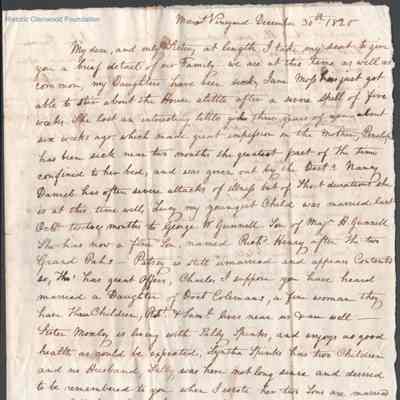 Historic Glenwood Foundation
Mount Vineyard December 30th 1828
My dear, and only Sister, at length I take my seat to give
you a brief detail of our Family we are at this time as well as
common, my Daughters have been sick, Jane Moss has just got
able to stir about the House a little after a severe spell of five
weeks. She lost an interesting little three years of age about
six weeks ago which made great impression on the mother, Penelope
has been sick near two months the greatest part of the time
confined to her bed, and was given out by the Doctr. Nancy
Daniel has often severe attacks of illness but of short duration she
is at this time well, Lucy my youngest Child was married last
Octbr. twelve months to George W. Gunnell Son of Majr. H. Gunnell
She has now a fine Son, named Robt. Henry after the two
Grand Pah's - Patsey is still unmarried and appears Contented
so, Tho' has great offers, Charles I suppose you have heard
married a Daughter of Doct Colemans, a fine woman they
have Children, Robt. & Saml. lives near us & are well -
Sister Moxley is living with Sally Spinks, and enjoys as good
health as could be expected, Cyntha Spinks has two Children
and no Husband, Sally was here not long since and desired
to be remembered to you when I wrote her two Sons are married